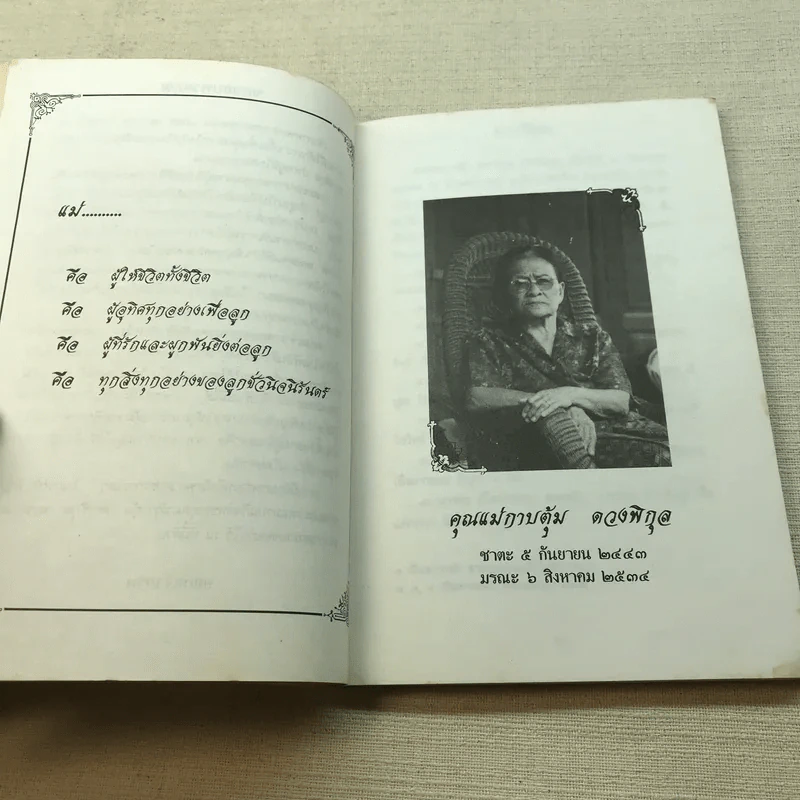 แม่..........
คือ ผู้ให้ชีวิตทั้งชีวิต
คือ ผู้อุทิศทุกอย่างเพื่อลูก
คือ ผู้ที่รักและผูกพันยิ่งต่อลูก
คือ ทุกสิ่งทุกอย่างของลูกชั่วนิจนิรันดร์
คุณแม่กาบตุ้ม ดวงพิกุล
ชาตะ ๕ กันยายน ๒๔๔๓
มรณะ ๖ สิงหาคม ๒๕๓๔